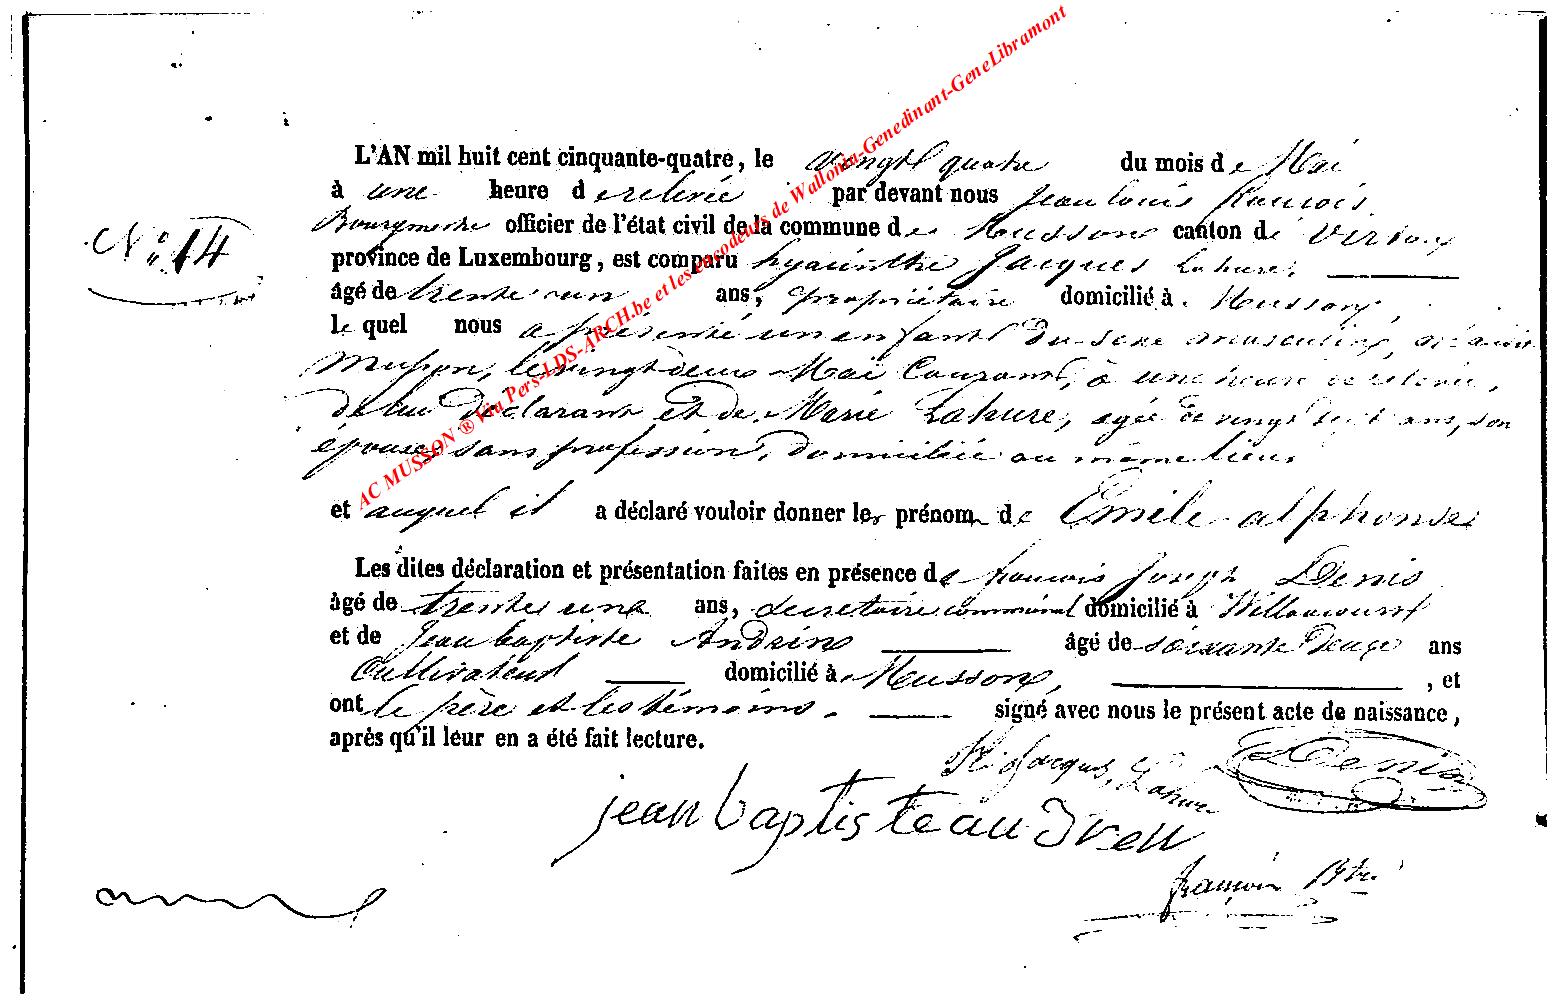 N° 14
L'AN mil huit cent cinquante-quatre, le vingt quatre du mois de Mai
à une heure de relevée par devant nous Jean Louis François
Bourgmestre officier de l'état civil de la commune de Musson canton de Virton
province de Luxembourg, est comparu hyacinthe Jacques Lahure,
âgé de trente un ans, propriétaire domicilié à Musson,
lequel nous a présenté un enfant du sexe masculin, né à
Musson, le vingt deux Mai Courant, à une heure de relevée,
de lui Déclarant et de Marie Lahure, agée de vingt sept ans, son
épouse, sans profession, domiciliée au même lieu
et auquel il a déclaré vouloir donner les prénom de Emile alphonse
Les dites déclaration et présentation faites en présence de françois Joseph Denis
âgé de trente un ans, secretaire communal domicilié à Willancourt
et de Jean baptiste Andrin âgé de soixante Douze ans
Cultivateur domicilié à Musson, , et
ont le père et les témoins. signé avec nous le présent acte de naissance,
après qu'il leur en a été fait lecture.
H. Jacques, Lahure Denis
jean baptiste andren
françois Btre
AC MUSSON ® Via Pers-LDS-ARCH.be et les encodeurs de Wallonia-Genedinant-GeneLibramont